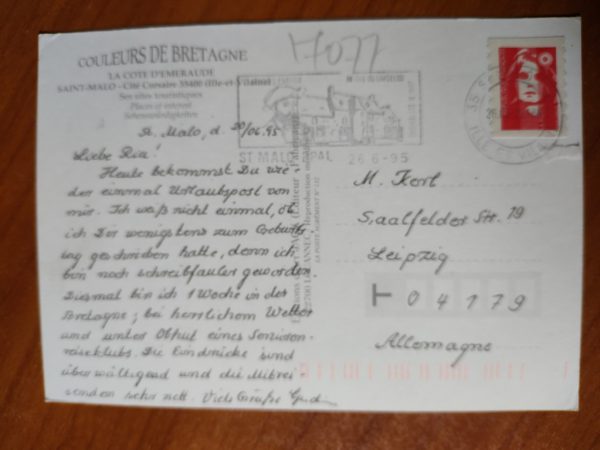 COULEURS DE BRETAGNE
LA COTE D'EMERAUDE
SAINT-MALO - Cité Corsaire 35400 (Ille-et-Vilaine)
Ses sites touristiques
Places of interest
Sehenswürdigkeiten
17077
St. Malo, d. 20/06.95
Liebe Ria!
Heute bekommst Du wie
der einmal Urlaubspost von
mir. Ich weiß nicht einmal, ob
ich Dir wenigstens zum Geburts-
tag geschrieben hatte, denn ich
bin noch schreibfauler geworden.
Diesmal bin ich 1 Woche in der
Bretagne, bei herrlichem Wetter
und unter Obhut eines Senioren-
reiseklubs. Die Eindrücke sind
überwältigend und die Mitrei-
senden sehr nett. Viele Grüße
ST MALO PPAL 26-6-95
M. Kort
Saalfelder Str. 19
Leipzig
04179
Allemagne